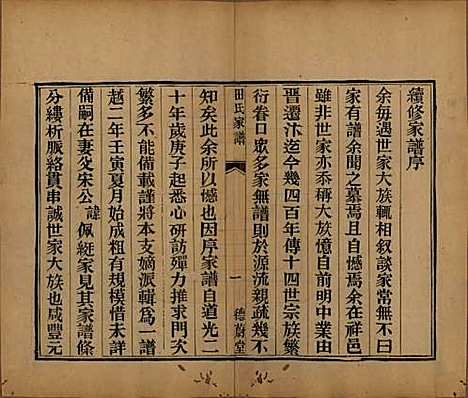 續修家譜序
余每遇世家大族輒相叙談家常無不曰
家有譜余聞之慕焉且憾焉余在祥邑
雖非世家亦忝稱大族憶自前明中業由
晋遷汴迄今幾四百年傳十四世宗族繁
衍眷口眾多家無譜則於源流親疏幾不
田氏家譜
一
德蔚堂
知矣此余所以憾也因序家譜自道光二
十年歲庚子起悉心研訪殫力推求門次
繁多不能備載謹將本支嫡派輯為一譜
越二年壬寅夏月始成粗有規模惜未詳
備嗣在妻父宋公諱佩綎家見其家譜條
分縷析脈絡貫串誠世家大族也咸豐元